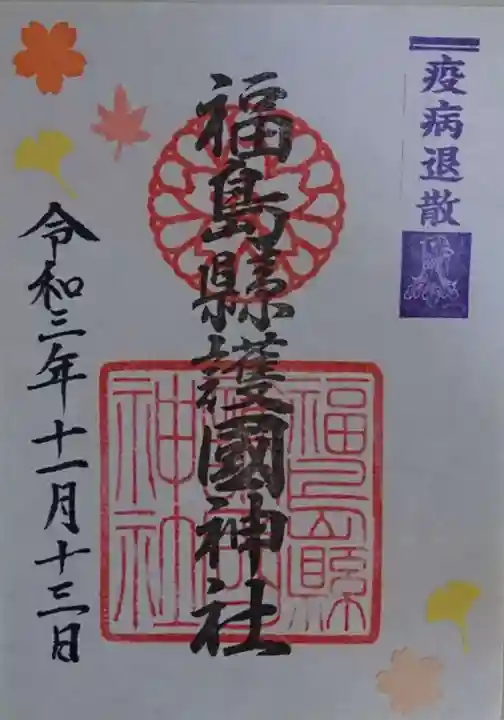 疫病退散
福島縣護國神社
福島縣
護國
神社
令和三年十一月十三日